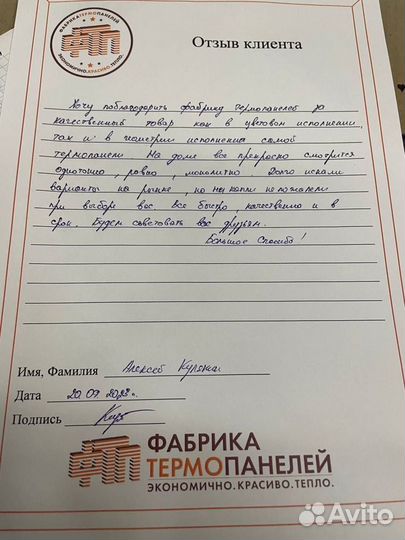 ФАБРИКА ТЕРМОПАНЕЛЕЙ
ФТП
ЭКОНОМИЧНО.КРАСИВО.ТЕПЛО.
Отзыв клиента
Хочу поблагодарить фабрику термопанелей за
качественный товар как в цветовом исполнении,
так и в геометрии исполнения самой
термопанели. На доме все прекрасно смотрится
однотонно, ровно, монолитно. Долго искали
варианты на рынке, но ни капли не пожалели
при выборе вас. Все быстро, качественно и в
срок. Будем советовать вас друзьям.
Большое спасибо!
Имя, Фамилия Алексей
Дата 20.07.2023г.
Подпись
ФТП
ФАБРИКА
ТЕРМОПАНЕЛЕЙ
ЭКОНОМИЧНО.КРАСИВО.ТЕПЛО.
Avito